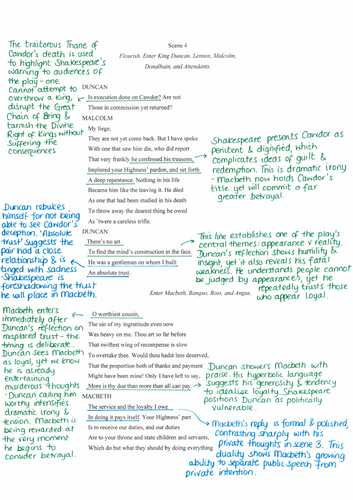 The traitorous Thane of
Cawdor's death is used
to highlight Shakespeare's
warning to audiences of
the play - one
cannot attempt to
overthrow a King,
disrupt the Great
Chain of Being &
tarnish the Divine
Right of Kings without
suffering the
consequences
Scene 4
Flourish. Enter King Duncan, Lennox, Malcolm,
Donalbain, and Attendants
DUNCAN
Is execution done on Cawdor? Are not
Those in commission yet returned?
MALCOLM
My liege,
They are not yet come back. But I have spoke
With one that saw him die, who did report
That very frankly he confessed his treasons,
Implored your Highness' pardon, and set forth
A deep repentance. Nothing in his life
Became him like the leaving it. He died
As one that had been studied in his death
To throw away the dearest thing he owed
As 'twere a careless trifle.
Shakespeare presents Cawdor as
penitent & dignified, which
complicates ideas of guilt &
redemption. This is dramatic irony
- Macbeth now holds Cawdor's
title yet will commit a far
greater betrayal.
Duncan rebukes
himself for not being
able to see Cawdor's
deception. 'Absolute
trust' suggests the
pair had a close
relationship & is
tinged with sadness
- Shakespeare is
foreshadowing the trust
he will place in Macbeth.
DUNCAN
There's no art
To find the mind's construction in the face.
He was a gentleman on whom I built
An absolute trust.
Enter Macbeth, Banquo, Ross, and Angus.
This line establishes one of the play's
central themes: appearance v reality.
Duncan's reflection shows humility &
insight, yet it also reveals his fatal
weakness. He understands people cannot
be judged by appearances, yet he
repeatedly trusts those
who appear loyal.
Macbeth enters
immediately after
Duncan's reflection on
misplaced trust - the
timing is deliberate.
Duncan sees Macbeth
as loyal, yet we know
he is already
entertaining
murderous thoughts
- Duncan calling him
worthy intensifies
dramatic irony &
tension. Macbeth is
being rewarded at
the very moment
he begins to
consider betrayal.
O worthiest cousin,
The sin of my ingratitude even now
Was heavy on me. Thou art so far before
That swiftest wing of recompense is slow
To overtake thee. Would thou hadst less deserved,
That the proportion both of thanks and payment
Might have been mine! Only I have left to say,
More is thy due than more than all can pay.
MACBETH
The service and the loyalty I owe
In doing it pays itself. Your Highness' part
Is to receive our duties, and our duties
Are to your throne and state children and servants,
Which do but what they should by doing everything
Duncan showers Macbeth with
praise. His hyperbolic language
suggests his generosity & tendency
to idealise loyalty. Shakespeare
positions Duncan as politically
vulnerable.
Macbeth's reply is formal & polished,
contrasting sharply with his
private thoughts in scene 3. This
duality shows Macbeth's growing
ability to separate public speech from
private intention.